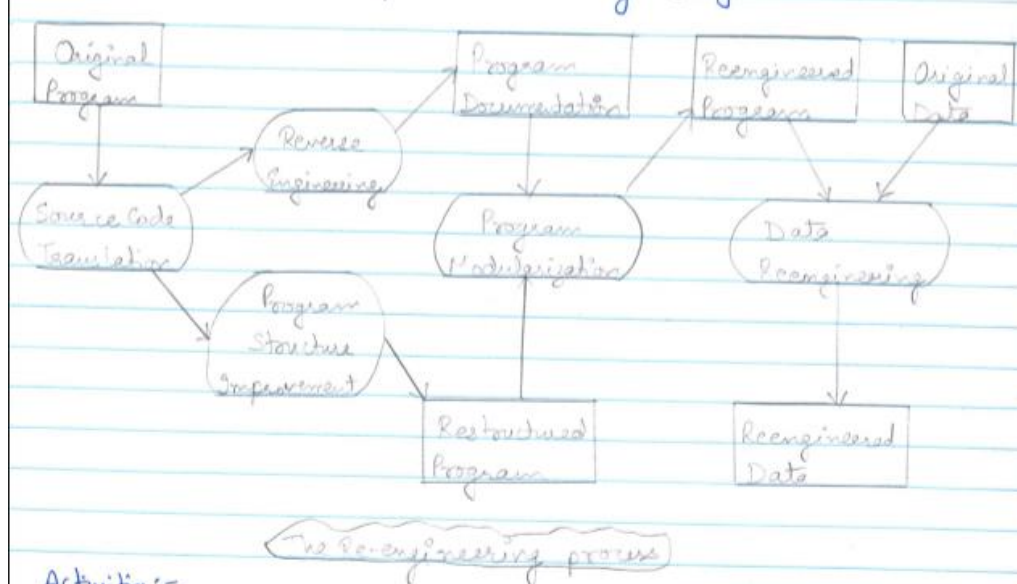 Original
Program
Program
Documentation
Reengineered
Program
Original
Data
Reverse
Engineering
Source Code
Translation
Program
Modularization
Data
Reengineering
Program
Structure
Improvement
Restructured
Program
Reengineered
Data
The Re-engineering process
Activities:-